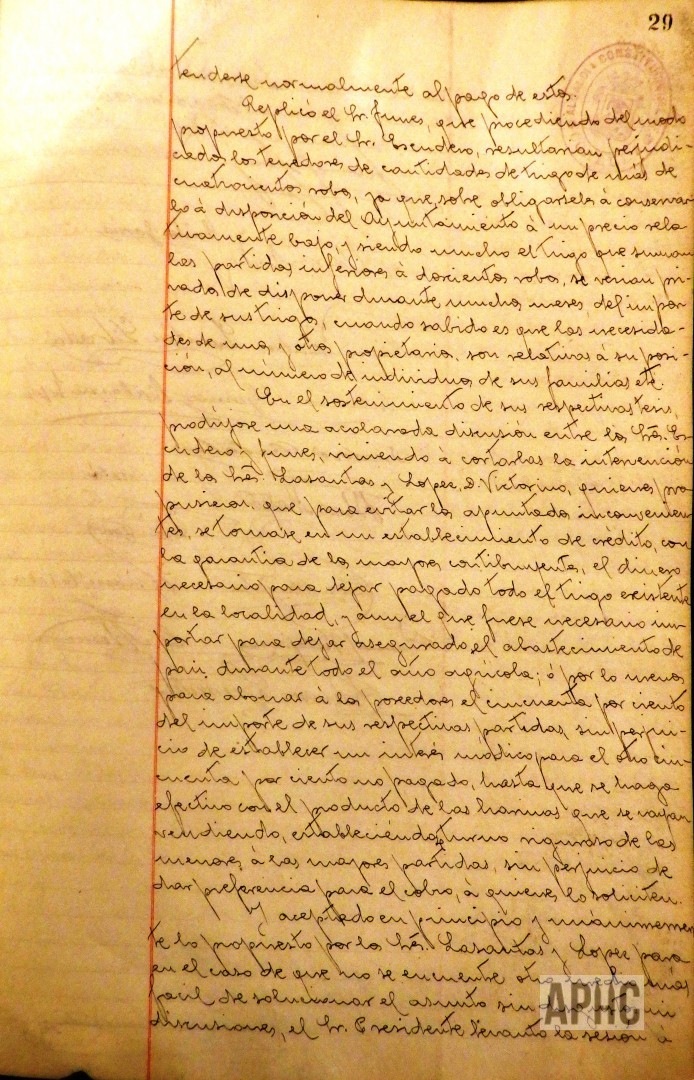 29
tenderse normalmente al pago de estos.
Replicó el Sr. Funes, que procediendo del modo
propuesto por el Sr. Escudero, resultarian perjudi-
cados los tenedores de cantidades de trigo de más de
cuatrocientos robos, ya que, sobre obligarseles á conservar-
lo á disposición del Ayuntamiento á un precio rela-
tivamente bajo, y siendo mucho el trigo que suman
las partidas inferiores á doscientos robos, se verian pri-
vados de disponer durante muchos meses, del impor-
te de sus trigos, cuando sabido es que las necesida-
des de unos y otros propietarios, son relativas á su posi-
ción, al número de individuos de sus familias etc.
En el sostenimiento de sus respectivas tesis,
prodújose una acalorada discusión entre los Srs. Es-
cudero y Funes, viniendo á cortarlas la intervención
de los Srs. Lasantas y Lopez, D. Victorino, quienes pro-
pusieron que para evitar los apuntados inconvenien-
tes, se tomase en un establecimiento de crédito, con
la garantia de los mayores contribuyentes, el dinero
necesario para dejar pagado todo el trigo existente
en la localidad, y aun el que fuese necesario im-
portar para dejar asegurado el abastecimiento de
pan durante todo el año agrícola; ó por lo menos
para abonar á los poseedores el cincuenta por ciento
del importe de sus respectivas partidas, sin perjui-
cio de establecer un interés módico para el otro cin-
cuenta por ciento no pagado, hasta que se haga
efectivo con el producto de las harinas que se vayan
vendiendo, estableciéndose turno riguroso de las
menores á las mayores partidas, sin perjuicio de
dar preferencia para el cobro, á quienes lo soliciten.
Y aceptado en principio y unánimemen-
te lo propuesto por los Srs. Lasantas y Lopez para
en el caso de que no se encuentre otro medio más
facil de solucionar el asunto sin
discusiones, el Sr. Presidente levantó la sesión á
APHC